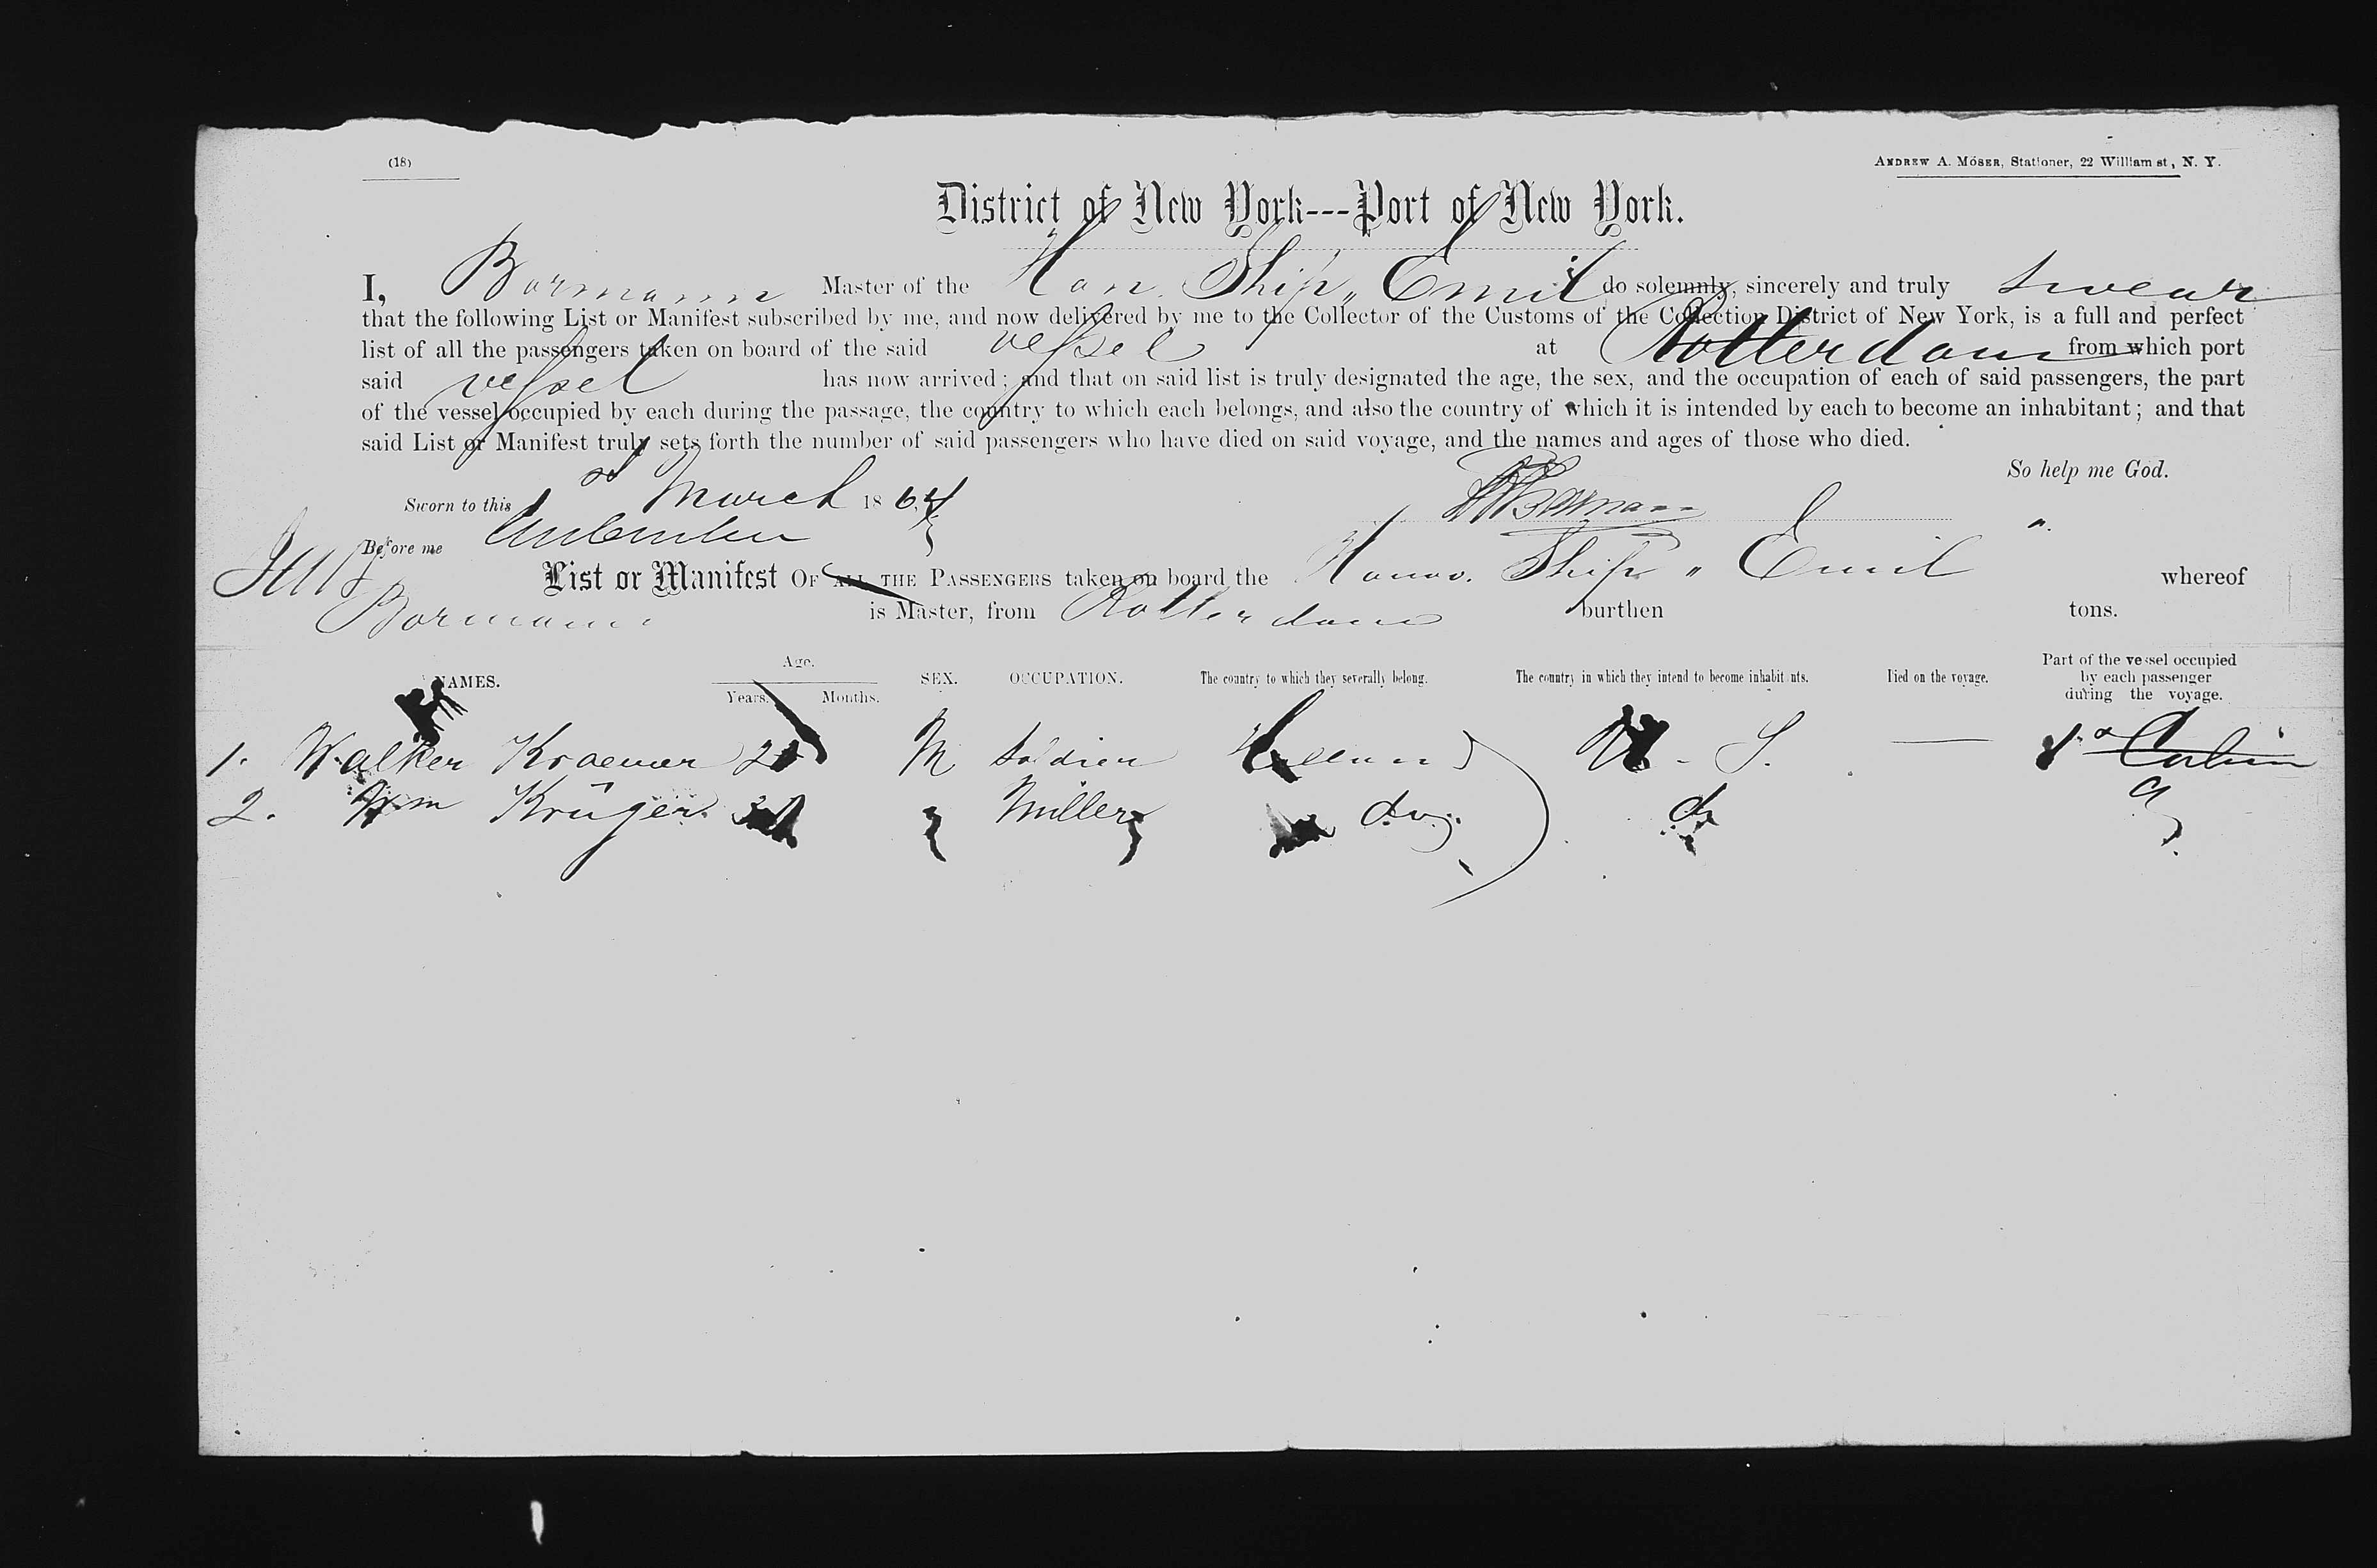 (18)
ANDREW A. MOSER, Stationer, 22 William st, N. Y.
District of New York---Port of New York.
I, Bormann Master of the Han. Ship "Emil" do solemnly, sincerely and truly swear
that the following List or Manifest subscribed by me, and now delivered by me to the Collector of the Customs of the Collection District of New York, is a full and perfect
list of all the passengers taken on board of the said vessel at Rotterdam from which port
said vessel has now arrived; and that on said list is truly designated the age, the sex, and the occupation of each of said passengers, the part
of the vessel occupied by each during the passage, the country to which each belongs, and also the country of which it is intended by each to become an inhabitant; and that
said List or Manifest truly sets forth the number of said passengers who have died on said voyage, and the names and ages of those who died.
So help me God.
Sworn to this 1st March 1864 Bormann
Before me
List or Manifest OF ALL THE PASSENGERS taken on board the Hanov. Ship "Emil" whereof
Bormann is Master, from Rotterdam burthen tons.
NAMES. Age. Years. Months. SEX. OCCUPATION. The country to which they severally belong. The country in which they intend to become inhabitants. Died on the voyage. Part of the vessel occupied by each passenger during the voyage.
1. Walker Kraemer M Soldier U. S. — Cabin
2. Wm Krüger Miller do